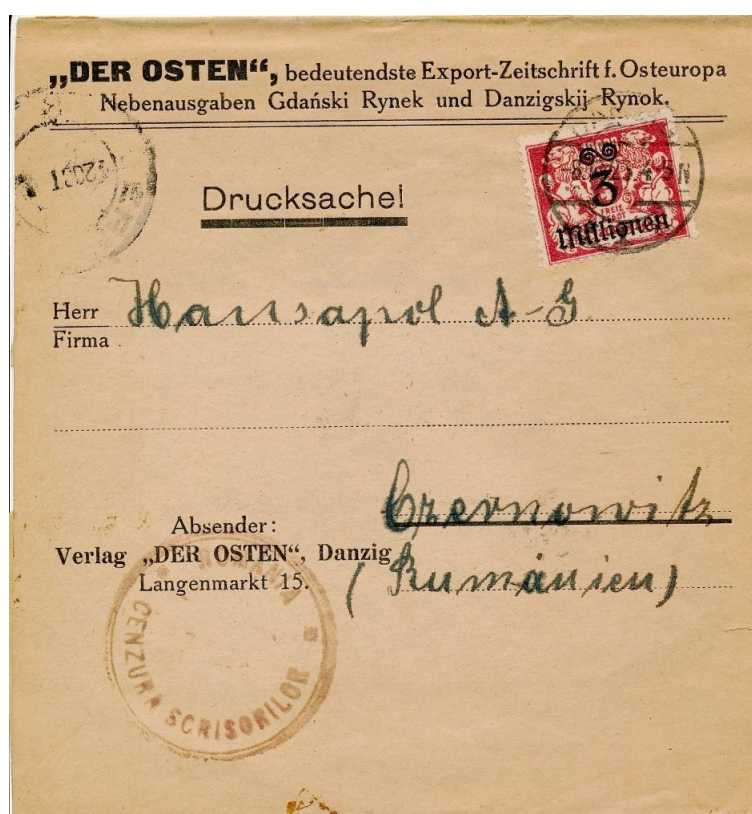 „DER OSTEN“, bedeutendste Export-Zeitschrift f. Osteuropa
Nebenausgaben Gdański Rynek und Danzigskij Rynok.
3
FREIE
STADT
Millionen
Drucksache!
Herr Hansapol A-G
Firma
Czernowitz
(Rumänien)
Absender:
Verlag „DER OSTEN“, Danzig
Langenmarkt 15.
CENZURA SCRISORILOR